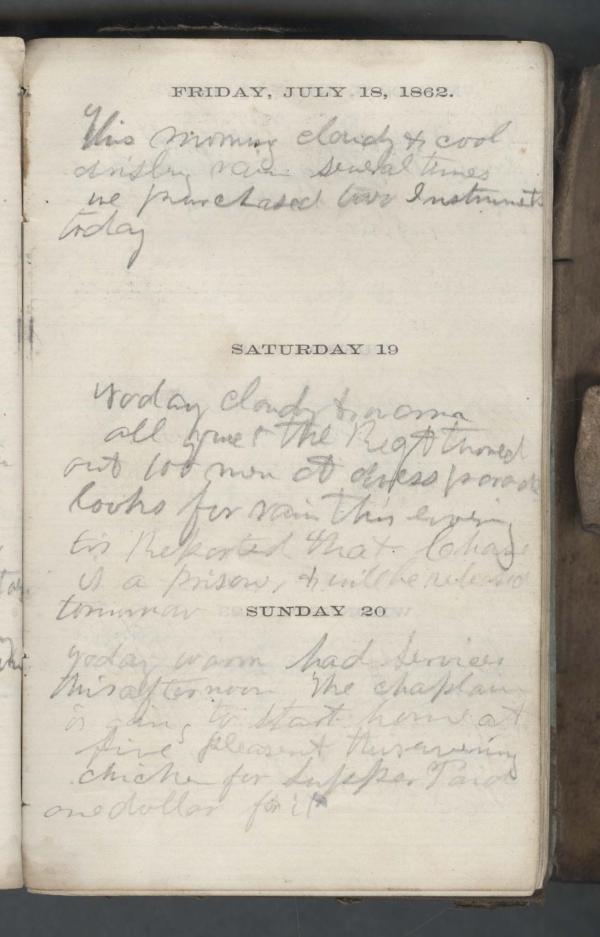 FRIDAY, JULY 18, 1862.
This morning cloudy & cool
drisley rain several times
we purchased two Instruments
today
SATURDAY 19
today cloudy & warm
all quiet the Regt turned
out 100 men at dress parade
looks for rain this evening
tis Reported that
is a prisoner, & will be released
tomorrow
SUNDAY 20
today warm had Services
this afternoon The chaplain
is going to start home at
five pleasent this evening
chicken for Supper Paid
one dollar for it